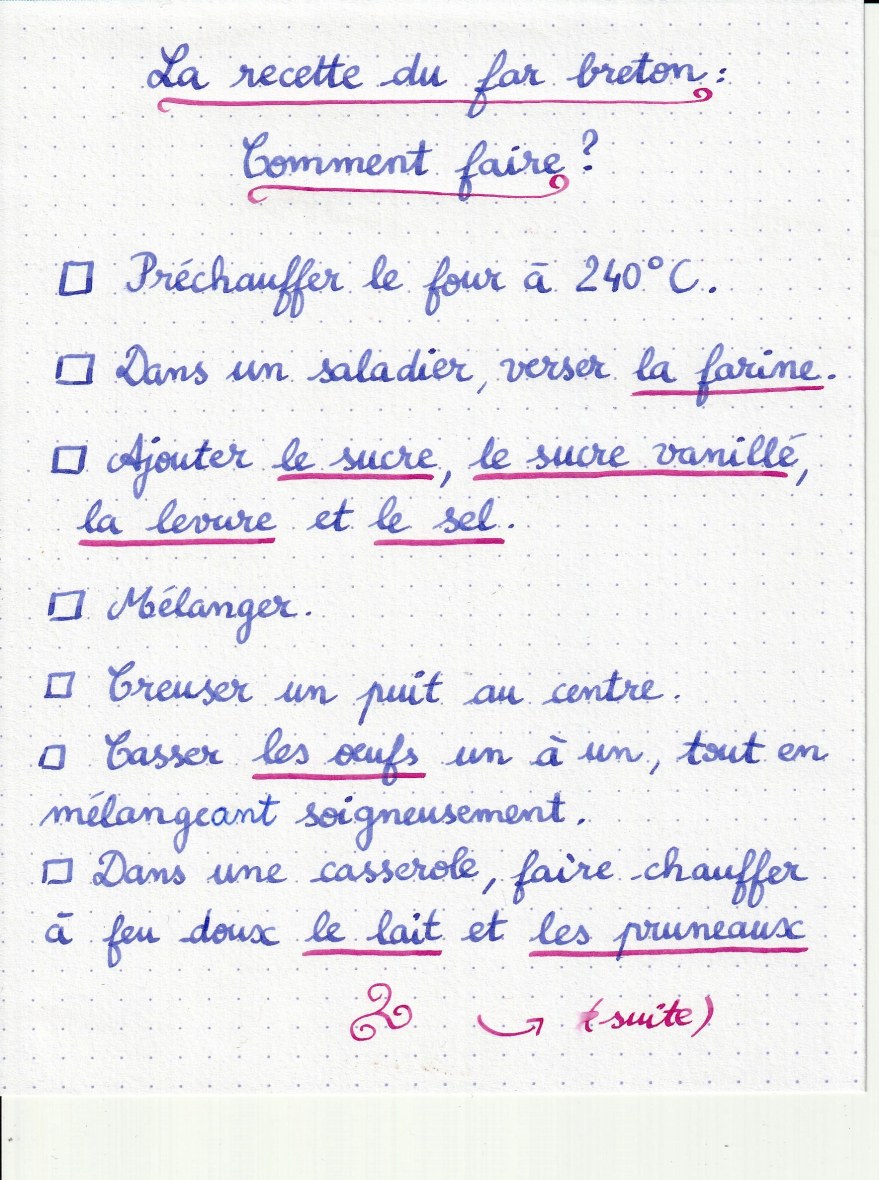 La recette du far breton :
Comment faire ?
☐ Préchauffer le four à 240°C.
☐ Dans un saladier, verser la farine.
☐ Ajouter le sucre, le sucre vanillé,
la levure et le sel.
☐ Mélanger.
☐ Creuser un puit au centre.
☐ Casser les œufs un à un, tout en
mélangeant soigneusement.
☐ Dans une casserole, faire chauffer
à feu doux le lait et les pruneaux
(suite)